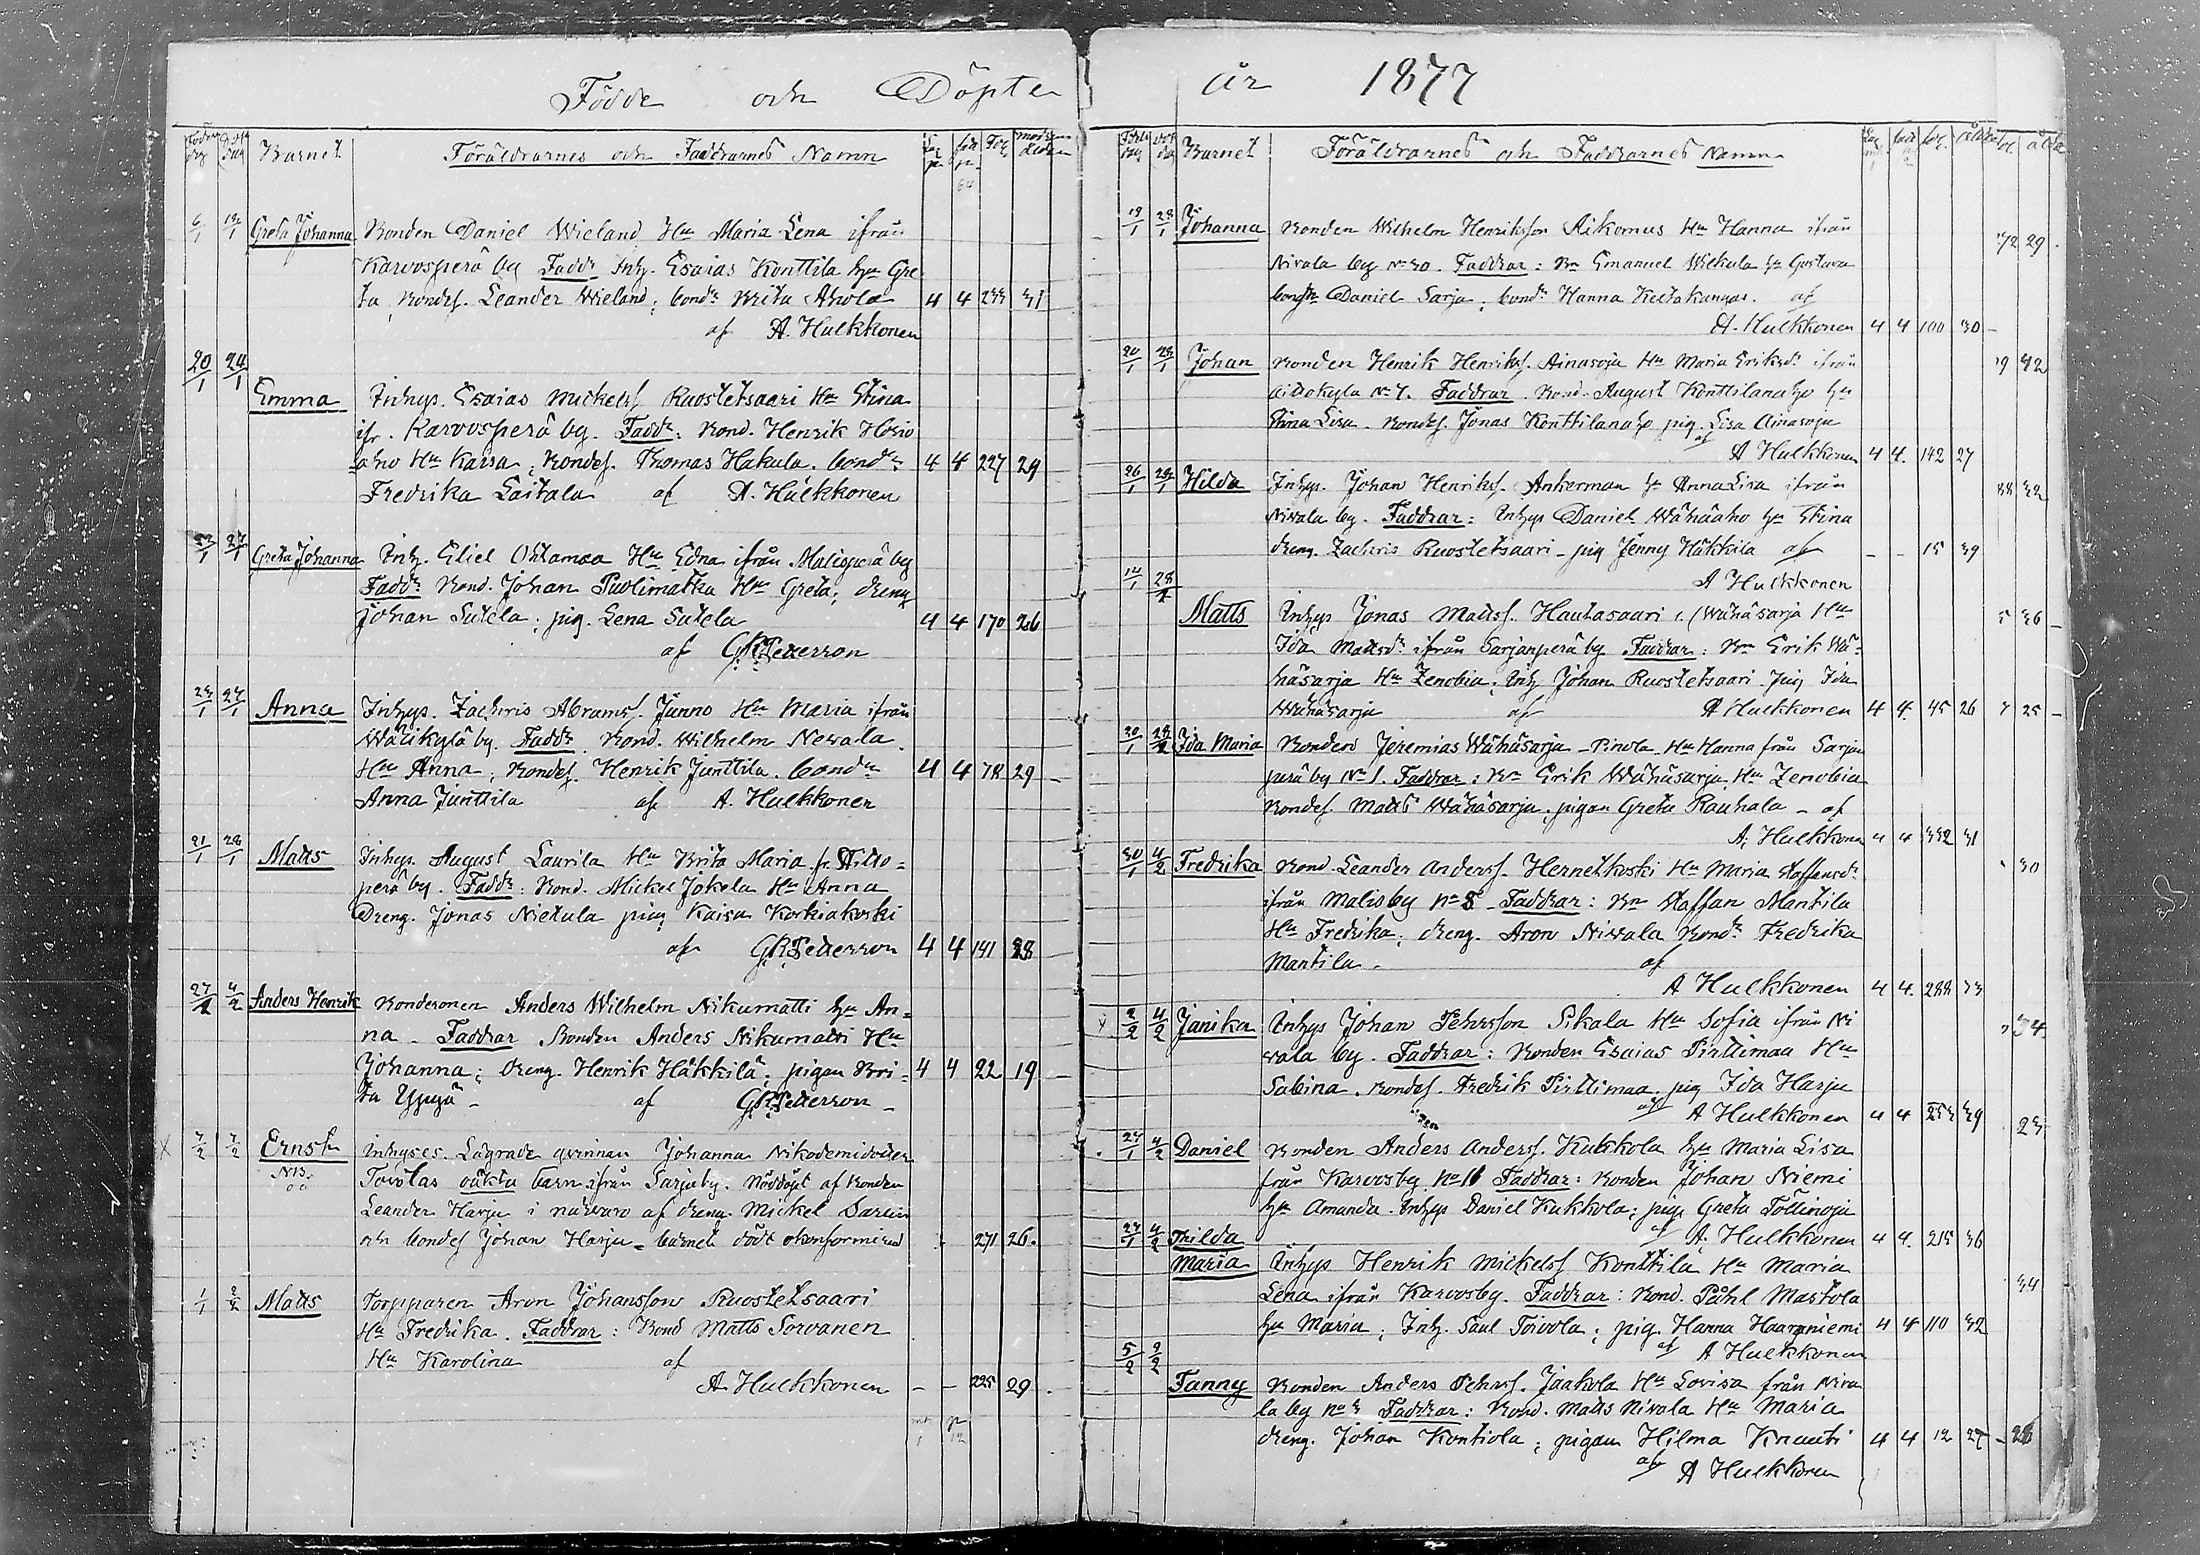 Födde och Döpte
Barnet Föräldrarnes och Faddrarnes Namn
6/1 Greta Johanna Bonden Daniel Wieland Hu Maria Lena ifrån
Karvosperä by Faddr Inh. Esaias Konttila hu Gre
ta, Bondes. Leander Wieland; bondr Brita Ahola 4 4 31
af A. Hulkkonen
20/1 24/1
Emma Inhys. Esaias Mickelss Ruostetsaari Hu Stina
ifr. Karvosperä by. Faddr: Bond. Henrik
aho Hu Kaisa; Bondes. Thomas Hakula. bondr 4 4 227 29
Fredrika Laitala af A. Hulkkonen
27/1 Greta Johanna Inh. Eliel Oktamaa Hu Edna ifrån Malisperä by
Faddr Bond. Johan Puolimatka Hu Greta; dreng
Johan Sutela; pig. Lena Sutela 4 4 170 26
af Petterson
27/1 Anna Inhys. Zachris Abramss. Junno Hu Maria ifrån
by. Faddr. Bond. Wilhelm Newala
Hu Anna; Bondes. Henrik Junttila. bondr 4 4 78 29
Anna Junttila af A. Hulkkonen
21/1 28/1 Matts Inhys. August Laurila Hu Brita Maria fr. Aitto=
perä by. Faddr: Bond. Mickel Jokela Hu Anna
Dreng. Jonas Nietula pig. Kaisa Korkiakoski
af Petterson 4 4 141 28
27/1 4/2 Anders Henrik Bondesonen Anders Wilhelm Nikumatti hu An=
na. Faddrar Bonden Anders Nikumatti Hu
Johanna; dreng. Henrik Häkkilä; pigan Bri= 4 4 22 19
ta af Petterson
7/2 7/2 Ernst Inhyses. Lägrade qvinnan Johanna Nikodemidotter
NB. Toivolas oäkta barn ifrån Sarjaby. Nöddöpt af bonden
Leander Harju i närvaro af dreng. Mickel
och bondes Johan Harju = barnet dödt 271 26.
1/1 2/2 Matts Torpparen Aron Johansson Ruostetsaari
Hu Fredrika. Faddrar: Bond Matts Sorvanen
Hu Karolina af
A. Hulkkonen - - 225 29
år 1877
Barnet Föräldrarnes och Faddrarnes Namn
28/1 Johanna Bonden Wilhelm Henriksson Aikomus Hu Hanna ifrån
Nivala by No 30. Faddrar: Bn Emanuel hu Gustava
Daniel Sarja; bondr Hanna Keltakangas. af
A. Hulkkonen 4 4 100 30
20/1 28/1 Johan Bonden Henrik Henrikss. Ainasoja Hu Maria Eriksdr ifrån
Aittokylä No 7. Faddrar. Bond. August Konttilanaho hu
Stina Lisa. Bondes. Jonas Konttilanaho pig. Lisa Ainasoja
af A Hulkkonen 4 4. 142 27
26/1 28/1 Hilda Inhys. Johan Henrikss. Ankerman hu Anna Lisa ifrån
Nivala by. Faddrar: Inhys Daniel Wähäaho hu Stina
dreng. Zachris Ruostetsaari - pig Jenny Häkkilä af - - 15 39
A Hulkkonen
28/1
Matts Inhys Jonas Mattss. Hautasaari l. Wähäsarja Hu
Ida Mattsdr ifrån Sarjanperä by Faddrar: Bn Erik Wä=
häsarja Hu Zenobia; Inh Johan Ruostetsaari pig Ida
Wähäsarja af A Hulkkonen 4 4. 45 26
20/1 Ida Maria Bonden Jeremias Wähäsarja - Pirola Hu Hanna från Sarjan
perä by No 1. Faddrar: Bn Erik Wähäsarja Hu Zenobia
Bondes. Matts Wähäsarja, pigan Greta Rauhala - af
A. Hulkkonen 4 4 332 31
30/1 4/2 Fredrika Bond. Leander Anderss. Hernetkoski Hu Maria Staffansdr
ifrån Malisby No 8. Faddrar: Bn Staffan Mantila
Hu Fredrika; dreng. Aron Nivala Bondr Fredrika
Mantila. af
A Hulkkonen 4 4. 288 33
2/2 4/2 Janika Inhys Johan Pehrsson Sikala Hu Sofia ifrån Ni
vala by. Faddrar: Bonden Esaias Pirttimaa Hu
Sabina. Bondes. Fredrik Pirttimaa. pig Ida Harju
af A Hulkkonen 4 4 39
27/1 4/2 Daniel Bonden Anders Anderss. Kukkola hu Maria Lisa
från Karvosby Faddrar: Bonden Johan Niemi
hu Amanda. Inhys Daniel Kukkola; pig. Greta Töllinoja
af A. Hulkkonen 4 4. 215 36
4/2 Thilda
Maria Inhys Henrik Mickelss Konttila Hu Maria
Lena ifrån Karvosby. Faddrar: Bond. Påhl Mastola
hu Maria; Inh. Saul Toivola; pig. Hanna Haapaniemi 4 4 110 32
af A Hulkkonen
5/2 9/2
Fanny Bonden Anders Pehrss. Jaakola Hu Lovisa från Niva
la by No 3 Faddrar: Bond. Matts Nivala Hu Maria
dreng. Johan Kontiola; pigan Hilma Knuuti 4 4 12 27
af A Hulkkonen